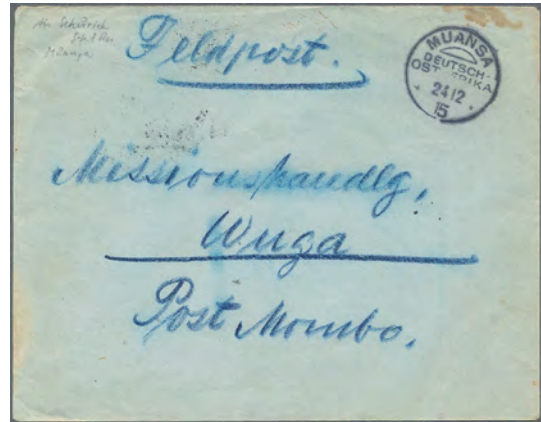 Schürich
Muanza
Feldpost.
MUANSA
DEUTSCH-
OSTAFRIKA
24 12
15
Missionshandlg,
Wuga
Post Mombo.